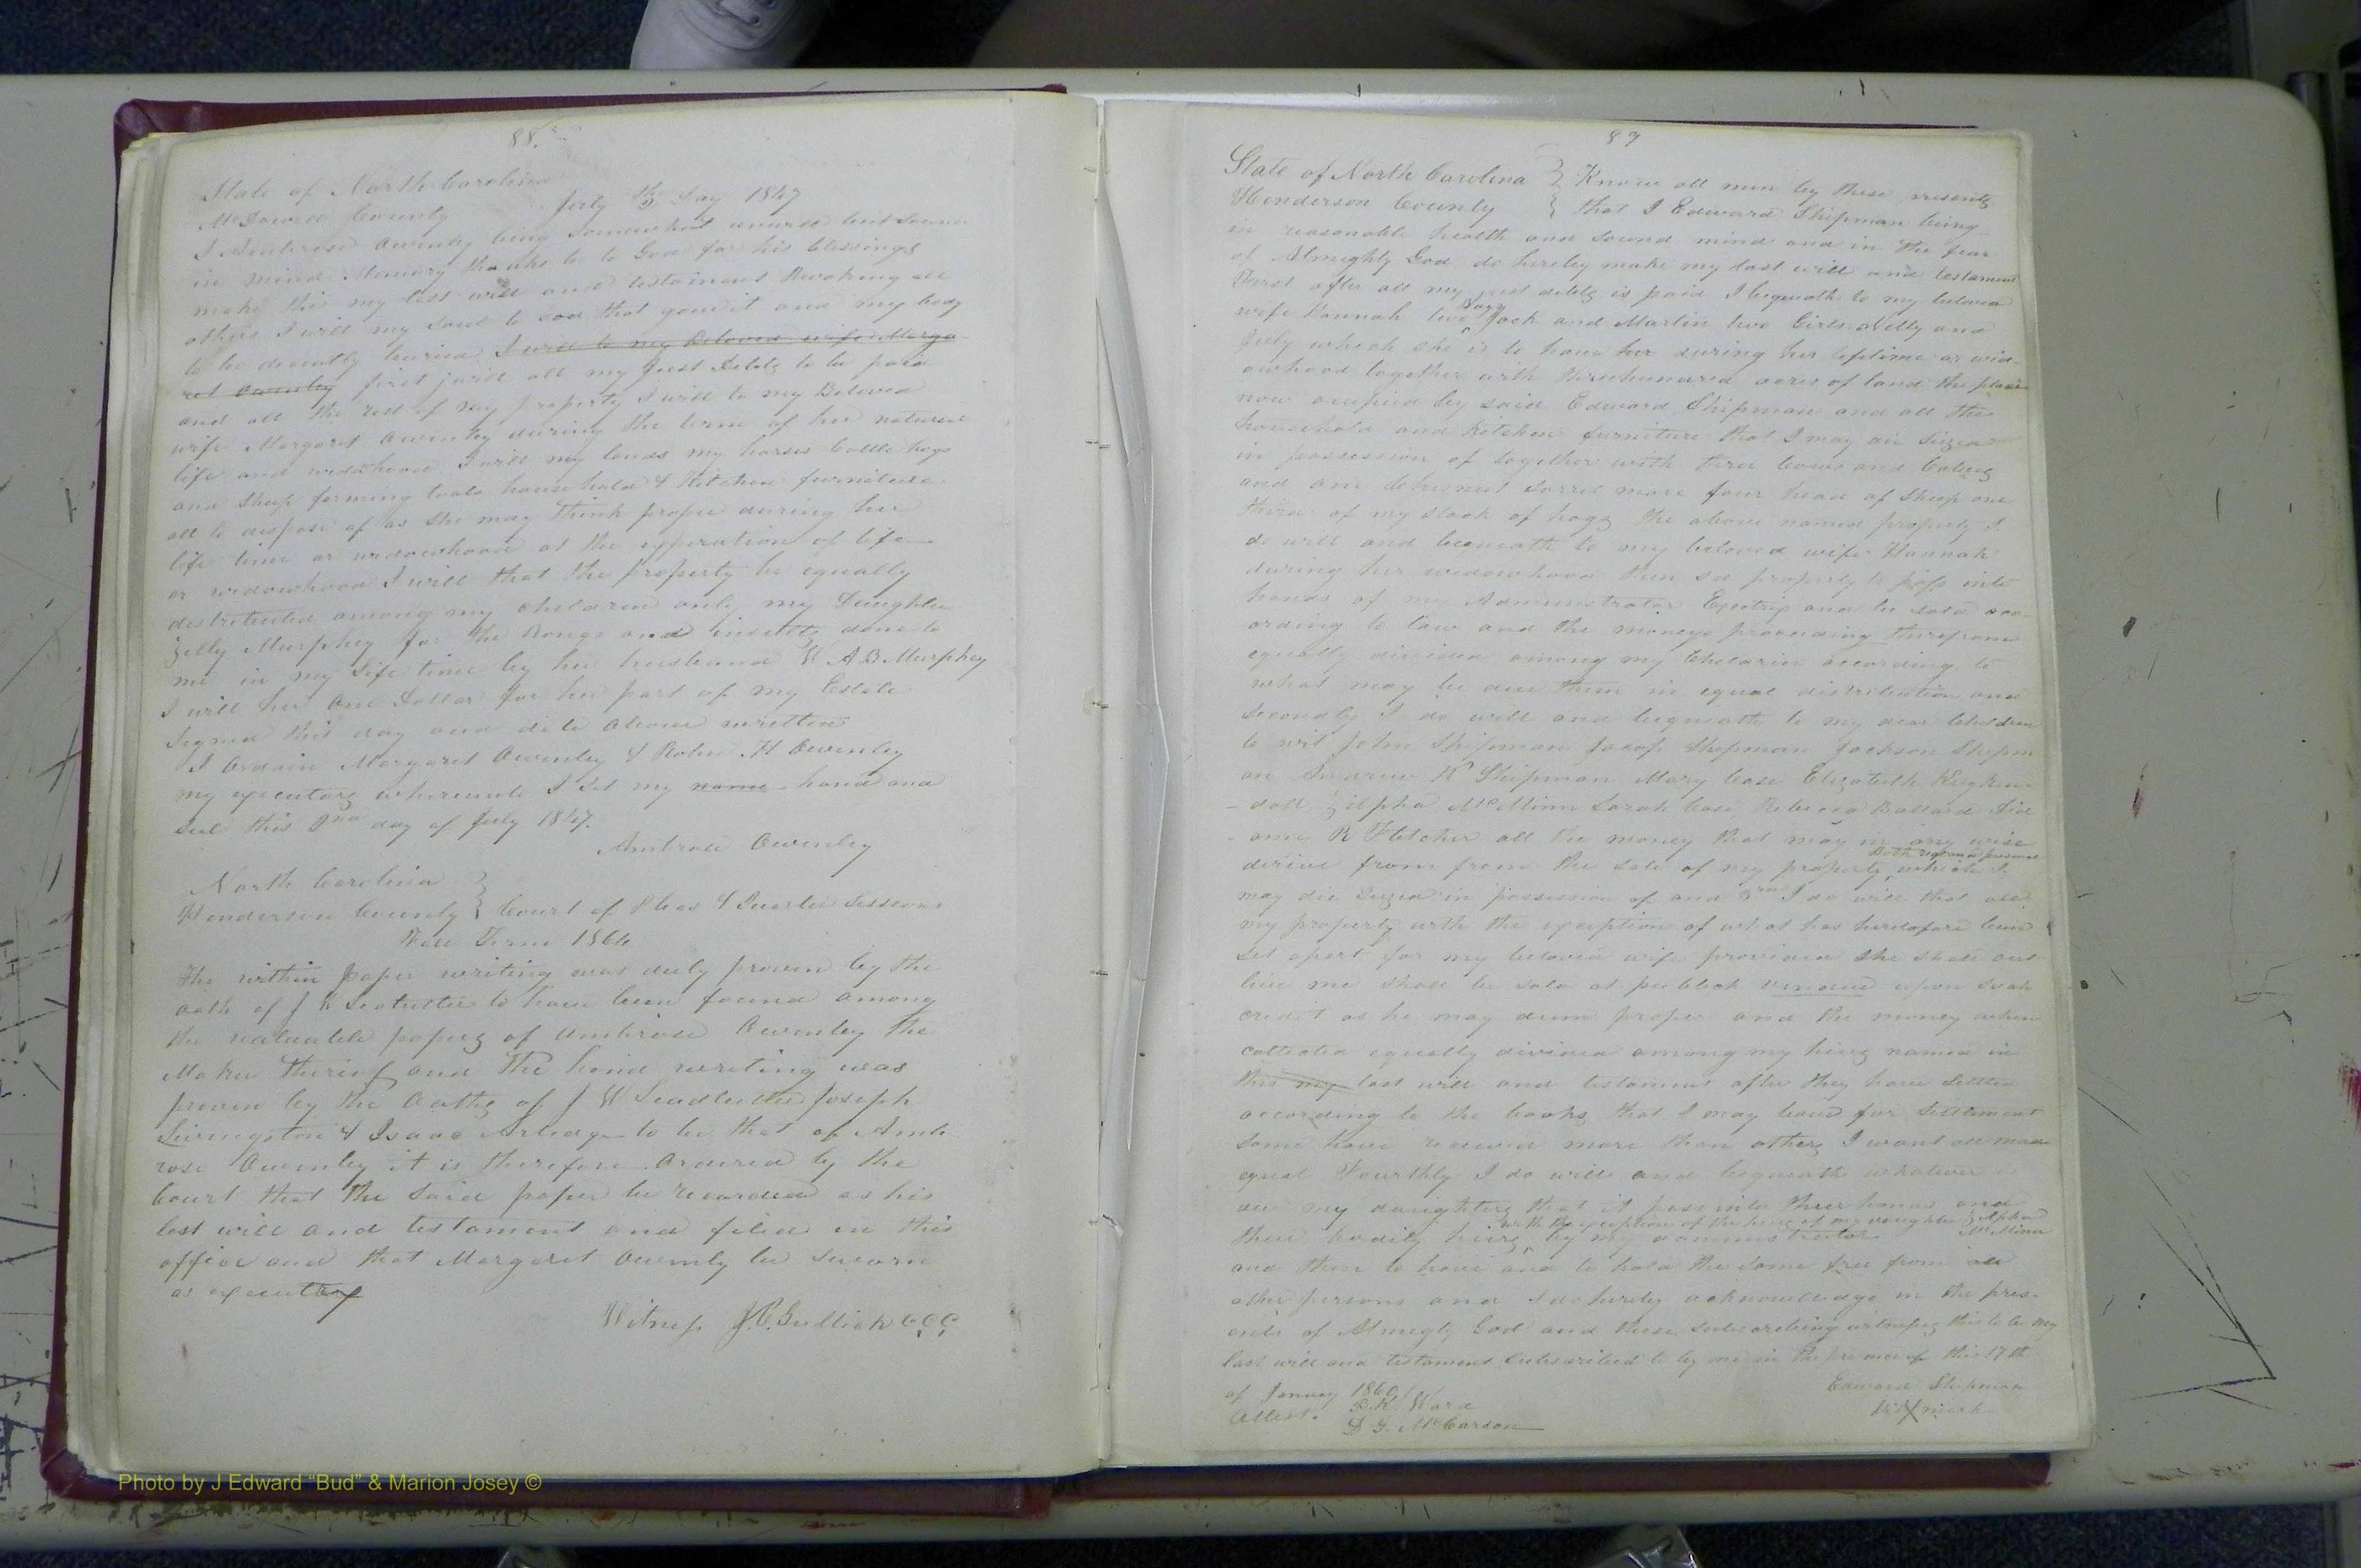 88.
State of North Carolina
McDowell County July the 2 Day 1847
I Ambrose Owenby being somewhat unwell but Sound
in mind Memory thanks be to God for his blessings
make this my last will and testament Revoking all
others I will my soul to God that gave it and my body
to be decently buried I will to my Beloved wife Marga
ret Owenby first I will all my Just Debts to be paid
and all the rest of my property I will to my Beloved
wife Margaret Owenby during the term of her natural
life and widowhood I will my lands my horses Cattle hogs
and sheep farming tools household & Kitchen furniture
all to dispose of as she may think proper during her
life time or widowhood at the expiration of life
or widowhood I will that the property be equally
distributed among my children only my Daughter
Zilly Murphey for the Rongs and insults done to
me in my life time by her husband W A B Murphey
I will her One Dollar for her part of my Estate
Signed this day and date above written
I Ordain Margaret Owenby & H Owenby
my executors whereunto I Set my name hand and
Seal this 2nd day of July 1847.
Ambrose Owenby
North Carolina }
Henderson County } Court of Pleas & Quarter Sessions
Fall Term 1864
The within paper writing was duly proven by the
oath of J W to have been found among
the valuable papers of Ambrose Owenby the
Maker thereof and the hand writing was
proven by the Oaths of J W Joseph
Livingston & Isaac Arledge to be that of Amb
rose Owenby it is therefore Ordered by the
Court that the Said paper be recorded as his
last will and testament and filed in this
office and that Margaret Owenby be Sworn
as executrix
Witness J. P. Gullick C C C
89
State of North Carolina } Know all men by these presents
Henderson County } that I Edward Shipman being
in reasonable health and Sound mind and in the fear
of Almighty God do hereby make my last will and testament
First after all my just debts is paid I bequeath to my beloved
wife Hannah two Boys Jack and Martin two Girls Nelly and
July which she is to have her during her lifetime or wid-
owhood together with three hundred acres of land the place
now occupied by said Edward Shipman and all the
household and Kitchen furniture that I may die Siezed
in possession of together with three Cows and Calves
and one Chesnut Sorrel mare four head of Sheep one
third of my stock of hogs the above named property I
do will and bequeath to my beloved wife Hannah
during her widowhood then sd property to pass into
hands of my Administrator and be sold acc-
ording to law and the moneys proceeding therefrom
equally divided among my Children according to
what may be due them in equal distribution and
Secondly I do will and bequeath to my dear Children
to wit John Shipman Jacob Shipman Jackson Shipm
an Andrew Shipman Mary Case Elizabeth Kuyken-
-dall Zilpha McMinn Sarah Case Rebecca Ballard
R Fletcher all the money that may in any wise
derive from from the sale of my property, Both real and personal which I
may die Siezed in possession of and 3rd I do will that all
my property with the exception of what has heretofore been
set apart for my beloved wife provided she shall out
live me shall be sold at publick vendue upon such
credit as he may deem proper and the money when
collected equally divided among my heirs named in
this my last will and testament after they have Settled
according to the books that I may leave for Settlement
some have received more than others I want all made
equal Fourthly I do will and bequeath whatever is
due my daughters that it pass into their hands and
with the exception of the heirs of my daughter Zilpha McMinn
their bodily heirs, by my administrator
and them to have and to hold the same free from all
other persons and I do hereby acknowledge in the pres-
ents of Almighty God and these subscribing witnesses this to be my
last will and testament Subscribed to by me in the presence of this 17th
of January 1860
Attest. Ward
McCarson
Edward Shipman
his X mark
Photo by J Edward “Bud” & Marion Josey ©